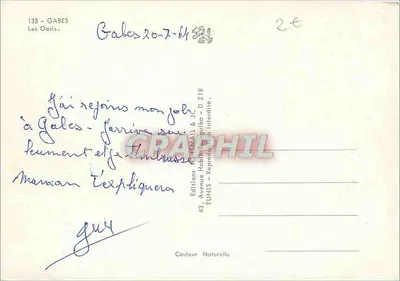 135 - GABES
Les Oasis.
Gabes 20-7-64
2€
J'ai rejoins mon job
à Gabes - J'arrive seu
lement et je t'embrasse
maman t'expliquera
guy
CARTAPHIL
Editions KAHIA & JC
43, Avenue Habib Bourguiba - D 218
TUNIS - Reproduction Interdite.
Couleur Naturelle